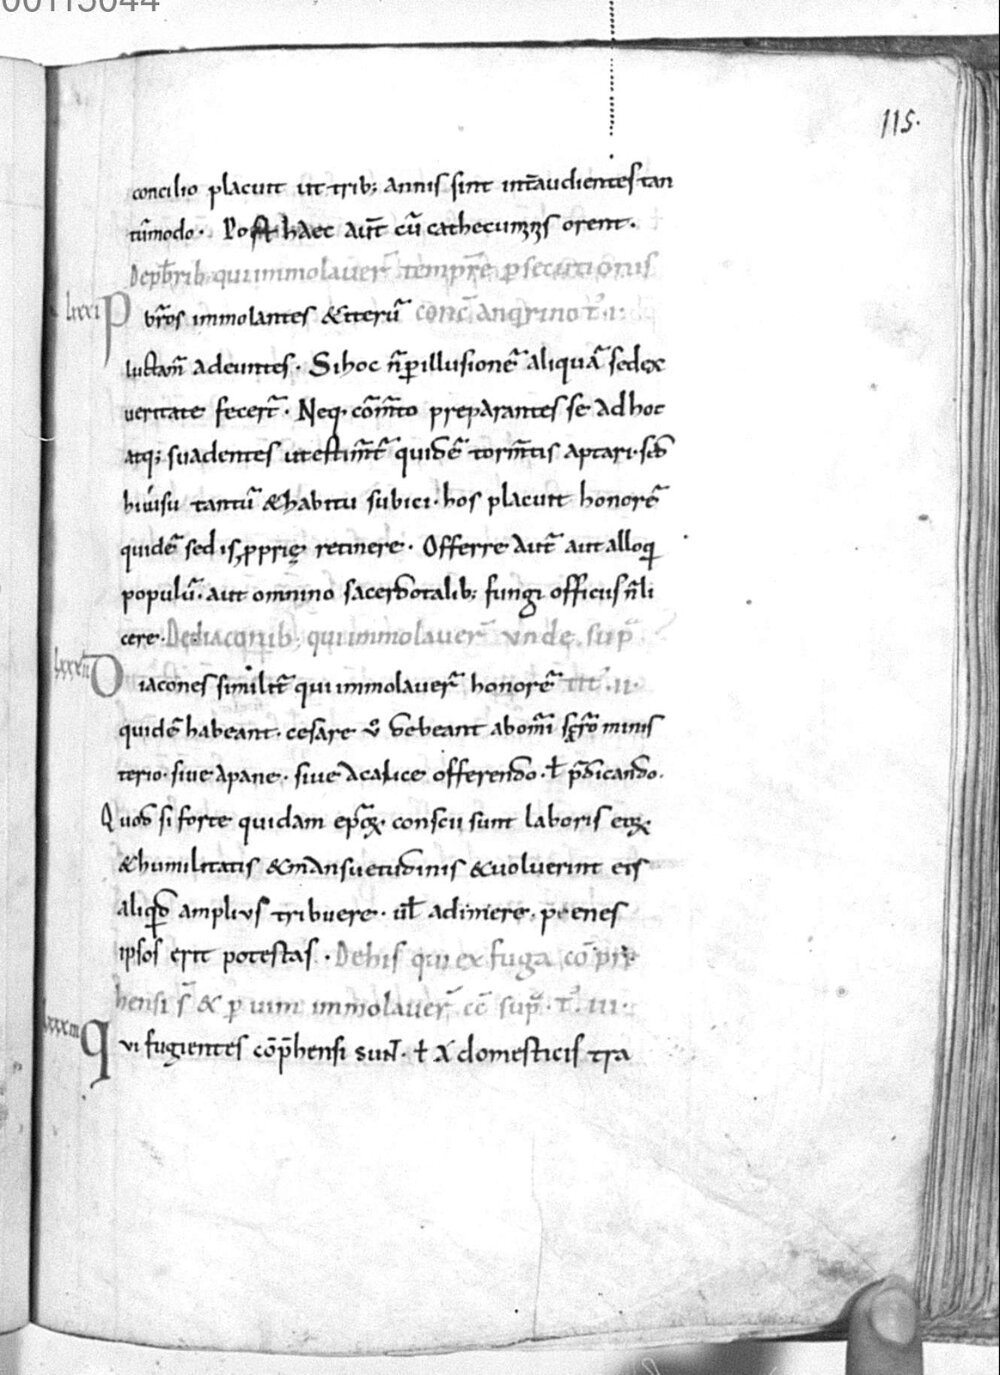 00115044
115.
concilio placuit ut trib; annis sint int̄audientes tan
tūmodo. Post haec aut̄ cū cathecuminis orent.
De pb̄rib; qui immolaver̄ tempr̄e p̄secutionis
lxxxi P br̄os immolantes & iterū conc̄ anqirino t̊.i.
luctam̄ adeuntes. Si hoc n̄ p̄ illusionē aliquā sed ex
veritate fecer̄t. Neq; com̄to preparantes se ad hoc
atq; suadentes ut estim̄t̄ quidē torm̄tis aptari. sed
hivisu tantū & habitu subici. hos placuit honorē
quidē sedis p̄prię retinere. Offerre aut̄ aut alloqi
populū. aut omnino sacerdotalib; fungi officiis n̄ li
cere. De diaconib; qui immolaver̄ unde sup̄
lxxxii D iacones similit̄ qui immolaver̄ honorē tit̊.ii.
quidē habeant. cesare v̊ debeant ab om̄i sc̄ro minis
terio. sive a pane. sive a calice offerendo. ł p̄dicando.
Quod si forte quidam epc̄oꝝ conscii sunt laboris eoꝝ
& humilitatis & mansuetudinis & voluerint eis
aliqd̄ amplius tribuere. ul̄ adimere. peenes
ipsos erit potestas. De his qui ex fuga cōp̄re
hensi s̄ & p̄ vim immolaver̄ cc̄ sup̄. t̊.iii.
lxxxiii q vi fugientes cōp̄hensi sunt. ł a domesticis tra